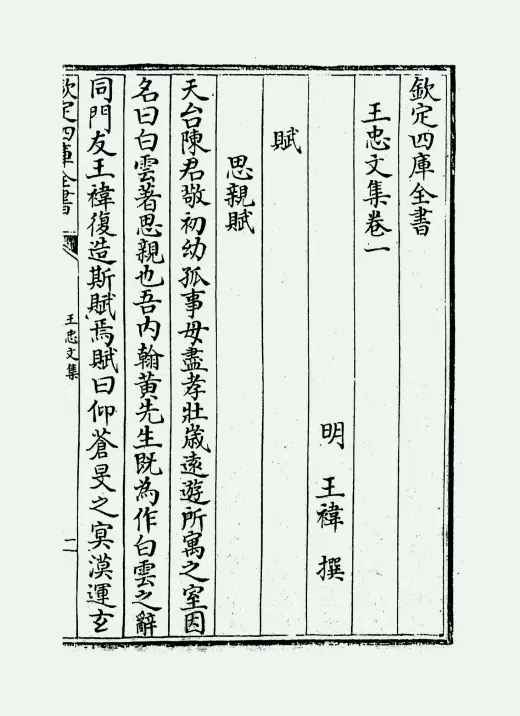 欽定四庫全書
王忠文集卷一
明 王褘 撰
賦
思親賦
天台陳君敬初幼孤事母盡孝壯歳遠遊所寓之室因
名曰白雲著思親也吾内翰黄先生既為作白雲之辭
同門友王褘復造斯賦焉賦曰仰蒼旻之冥漠運玄
欽定四庫全書
王忠文集